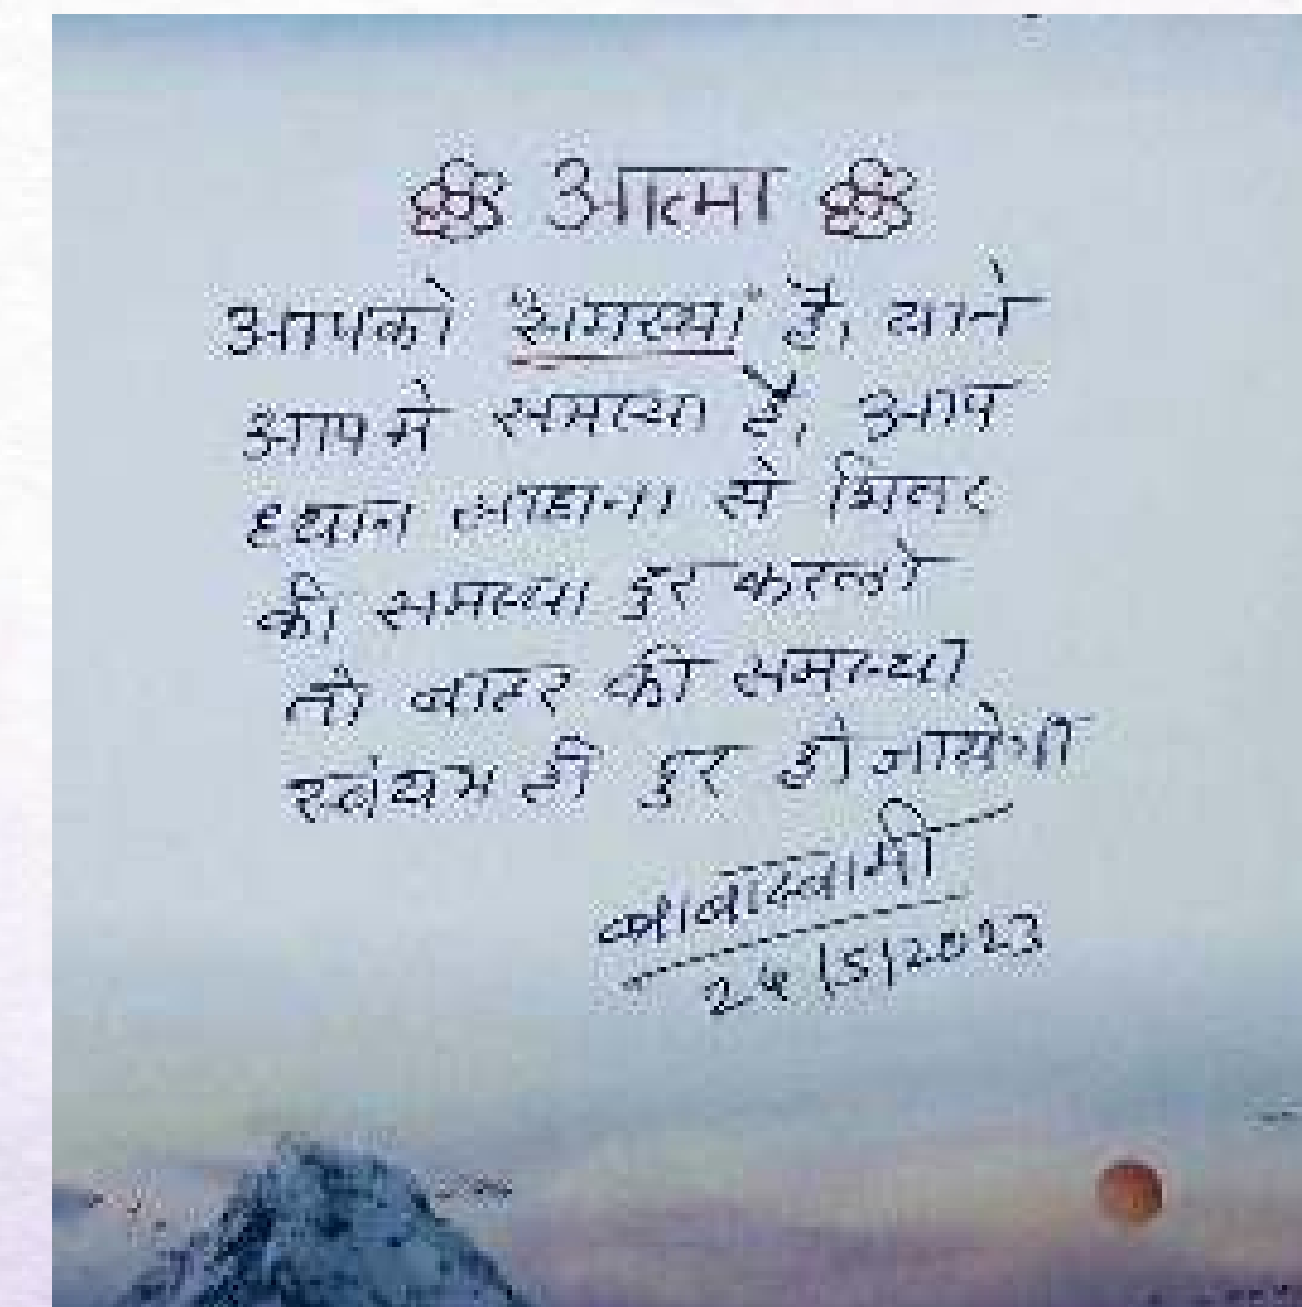 आत्मा
आपको "समस्या" है, याने
आप मे समस्या है, आप
ध्यान साधना से भितर
की समस्या दुर करलो
तो बाहर की समस्या
स्वंयम ही दुर हो जायेगी
बाबास्वामी
24/5/2023